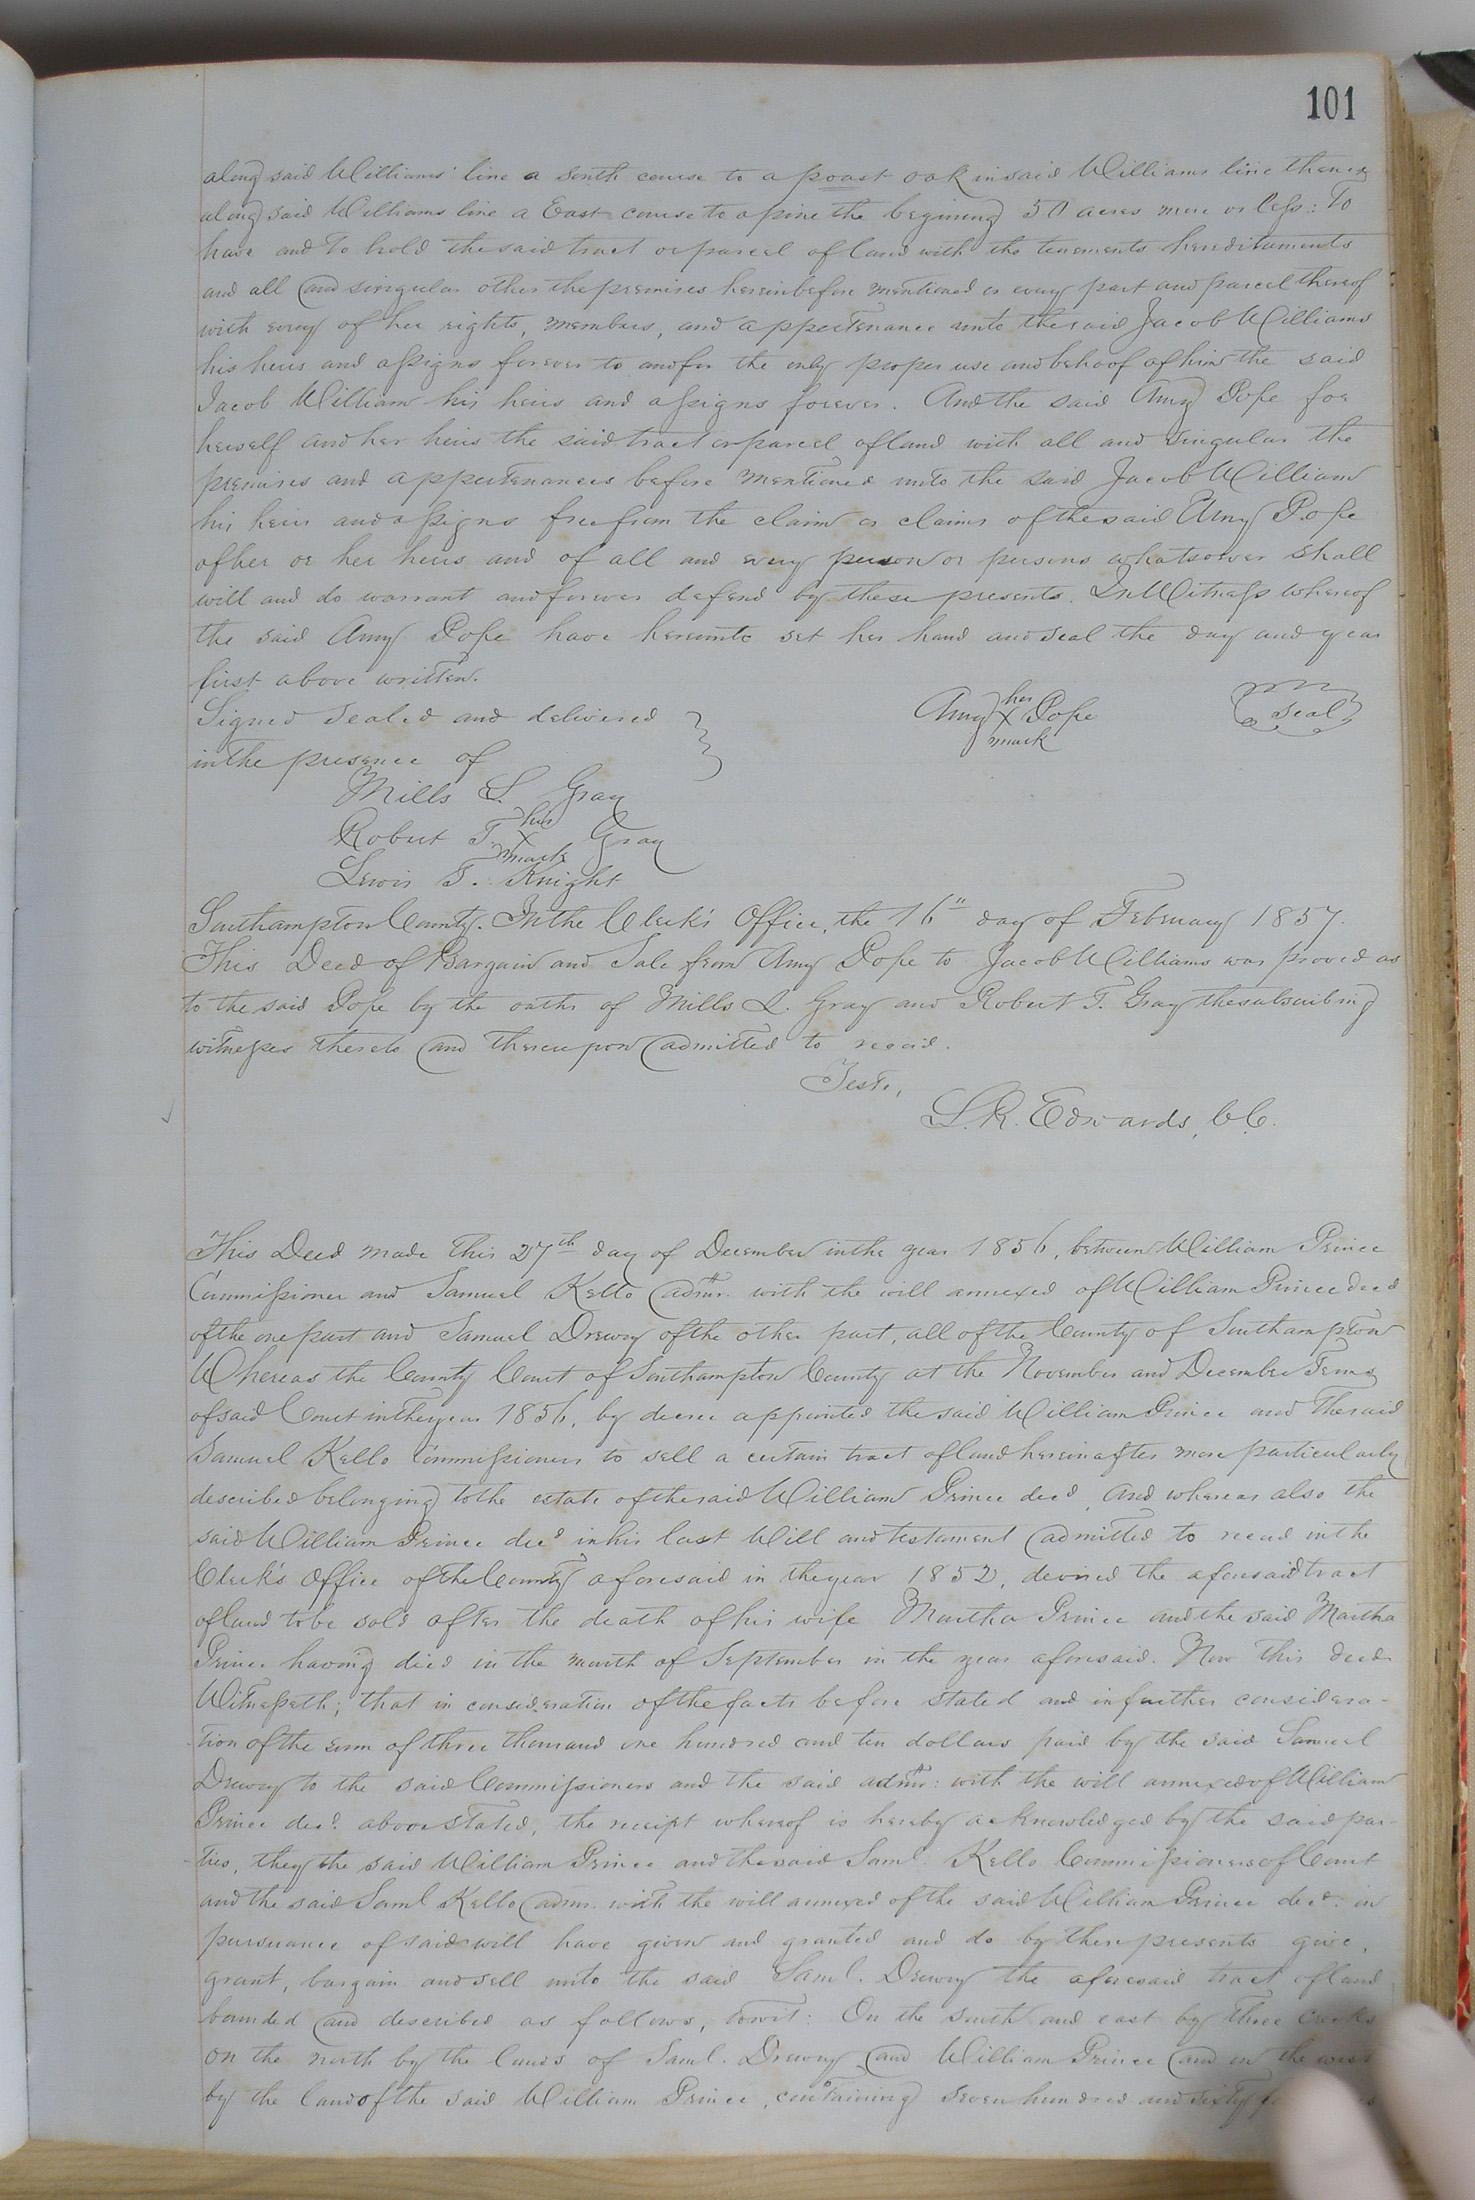 101
along said Williams' line a South course to a poast oak in said Williams line thence
along said Williams line a East course to a pine the begining 50 acres more or less: To
have and To hold the said tract or parcel of land with the tenements hereditaments
and all and singular other the premises hereinbefore mentioned or every part and parcel thereof
with every of her rights, members, and appertenance unto the said Jacob Williams
his heirs and assigns forever to and for the only proper use and behoof of him the said
Jacob William his heirs and assigns forever. And the said Amy Pope for
herself and her heirs the said tract or parcel of land with all and singular the
premises and appertenances before mentioned unto the said Jacob William
his heirs and assigns free from the claim or claims of the said Amy Pope
of her or her heirs and of all and every person or persons whatsoever shall
will and do warrant and forever defend by these presents. In Witness whereof
the said Amy Pope have hereunto set her hand and seal the day and year
first above written.
Signed Sealed and delivered
in the presence of
Amy her X mark Pope Seal
Mills L. Gray
Robert T. his X mark Gray
Lewis T. Knight
Southampton County. In the Clerk's Office, the 16" day of February 1857.
This Deed of Bargain and Sale from Amy Pope to Jacob Williams was proved as
to the said Pope by the oaths of Mills L. Gray and Robert T. Gray the subscribing
witnesses thereto and thereupon admitted to record.
Teste,
L. R. Edwards, C.C.
This Deed made this 27th day of December in the year 1856, between William Prince
Commissioner and Samuel Kello admr. with the will annexed of William Prince decd
of the one part and Samuel Drewry of the other part, all of the County of Southampton
Whereas the County Court of Southampton County at the November and December Terms
of said Court in the year 1856, by decree appointed the said William Prince and the said
Samuel Kello Commissioners to sell a certain tract of land hereinafter more particularly
described belonging to the estate of the said William Prince decd, and whereas also the
said William Prince decd in his last Will and testament admitted to record in the
Clerk's Office of the County aforesaid in the year 1852, devised the aforesaid tract
of land to be sold after the death of his wife Martha Prince and the said Martha
Prince having died in the month of September in the year aforesaid. Now this deed
Witnesseth; that in consideration of the facts before stated and in further considera-
tion of the sum of three thousand one hundred and ten dollars paid by the said Samuel
Drewry to the said Commissioners and the said admr: with the will annexed of William
Prince decd. above stated, the receipt whereof is hereby acknowledged by the said par-
ties, they the said William Prince and the said Saml. Kello Commissioners of Court
and the said Saml Kello admr. with the will annexed of the said William Prince decd. in
pursuance of said will have given and granted and do by these presents give,
grant, bargain and sell unto the said Saml. Drewry the aforesaid tract of land
bounded and described as follows, towit: On the south and east by Three Creeks
on the north by the lands of Saml. Drewry and William Prince and on the west
by the land of the said William Prince, containing seven hundred and sixty